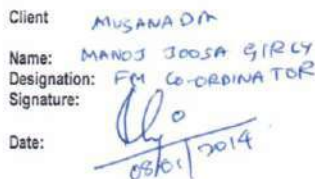 Client MUSANADA
Name: MANOJ JOOSA GIRLY
Designation: FM CO-ORDINATOR
Signature:
Date: 08/01/2014